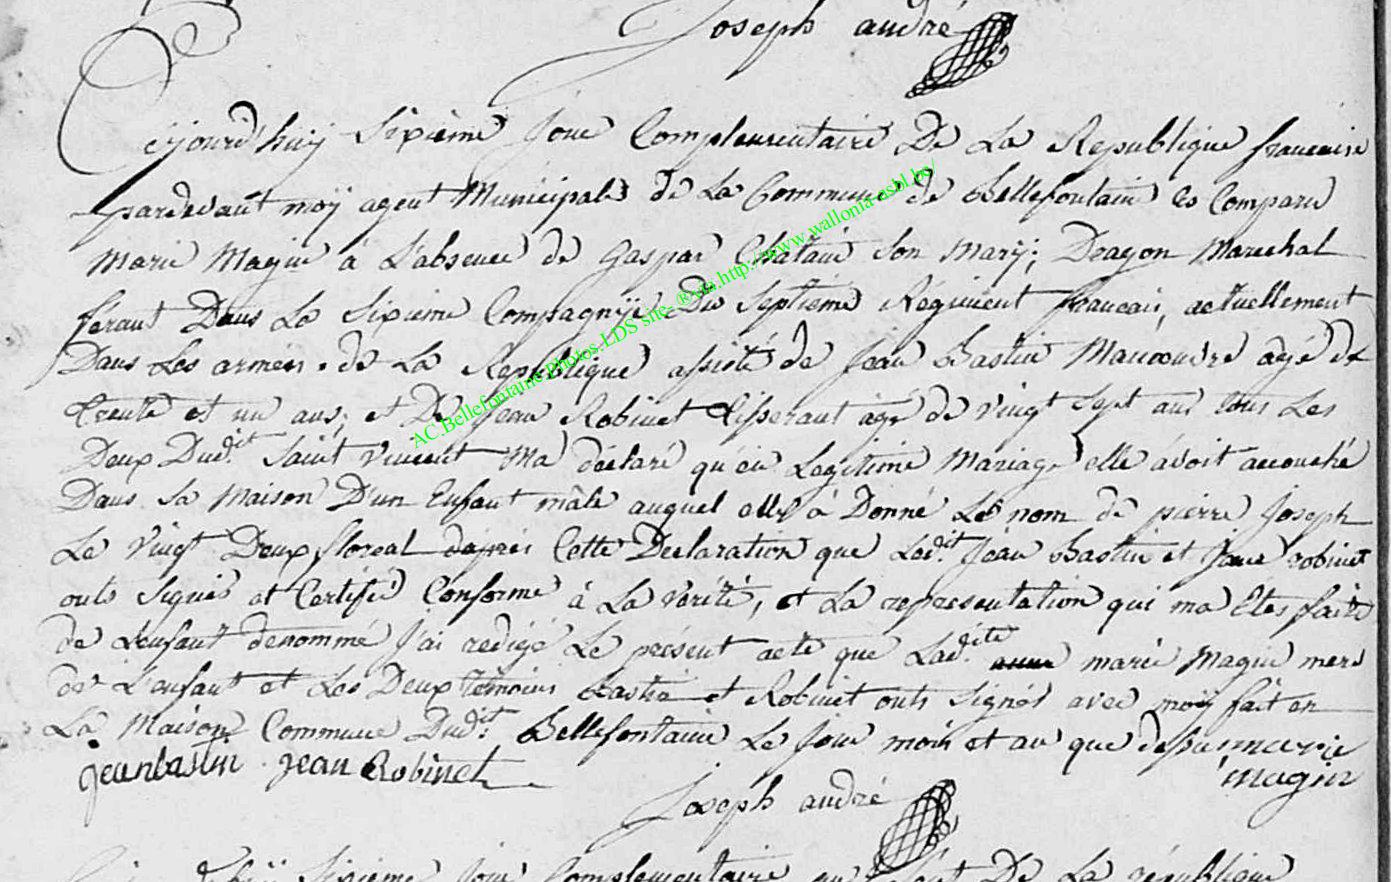 Joseph andré
Cejourd'huy Sixième Jour Complementaire De La Republique francaise
pardevant moÿ agent Municipale de La Commune de Bellefontaine Es Comparu
marie Magin à L'absence de Gaspar Chatain Son Marÿ; Dragon Marechal
feraut Dans La Sixieme Compagnÿe Du Septieme Régiment francais, actuellement
Dans Les armées de La Republique assisté de Jean Bastin Manoeuvre agé de
trente et un ans; et De Jean Robinet tisserant agé de vingt Sept ans tous Les
Deux Dudit. Saint Vincent Ma déclaré qu'en Legitime Mariage elle avoit accouché
Dans Sa Maison D'un Enfant mâle auquel elle à Donné Le nom de pierre Joseph
Le Vingt Deux floreal daprés Cette Declaration que Ledit. Jean Bastin et Jean robinet
onts Signés et Certifié Conforme à La Vérité, et La representation qui ma Etés faite
de L'enfant denommé J'ai redigé Le présent acte que Ladite. marie Magin mere
de L'enfant et Les Deux temoins Bastin et Robinet onts Signés avec moÿ fait en
La Maison Commune Dudit. Bellefontaine Le Jour mois et an que dessu marie
jean bastin jean Robinet magin
Joseph andré
Sixieme Jour Complementaire De La république
AC.Bellefontaine Photos.LDS site ® via http://www.wallonia-asbl.be/